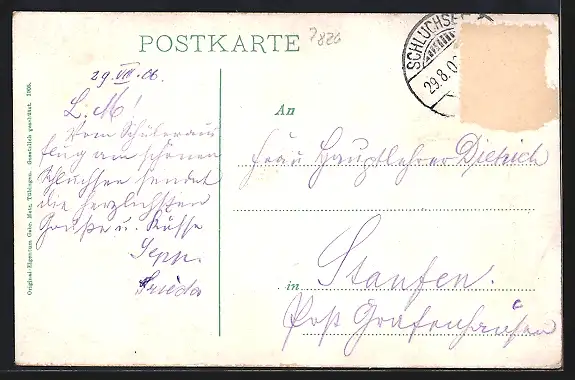 POSTKARTE
7826
SCHLUCHSEE
29.8.0
29.VIII.06.
L. M!
Vom Schüleraus
flug am schönen
Schluchsee sendet
die herzlichsten
Grüße u. Küsse
Sepp.
Frieda
An
Frau Hauptlehrer Dietrich
in Staufen.
Post Grafenhausen
Original-Eigentum Gebr. Metz, Tübingen. Gesetzlich geschützt. 1905.